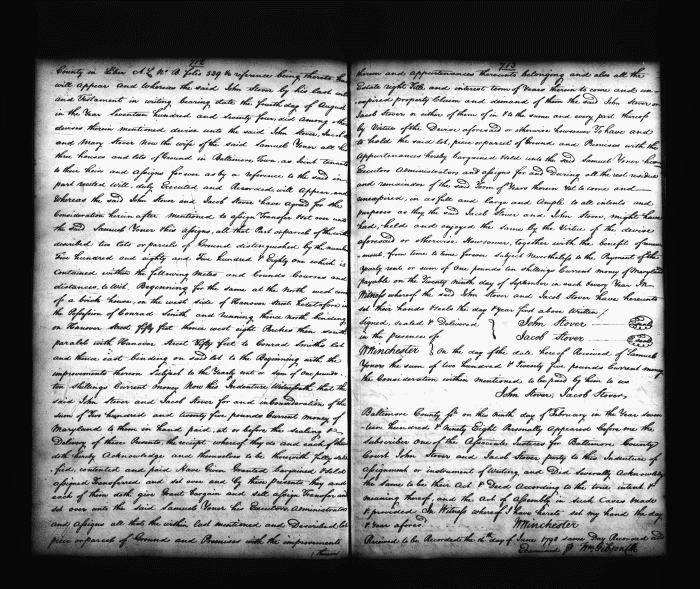 712
County in Liber N.L. No. B. folio 339 &c reference being thereto had
will appear And whereas the said John Stover by his last will
and Testament in writing bearing date the fourth day of August
in the Year Seventeen hundred and seventy four, did Among other
devises therein mentioned devise unto the said John Stover, Jacob
and Mary Stover Now the wife of the said Samuel Yoner all his
three houses and lots of Ground in Baltimore Town, as Joint tenants
to their Heirs and Assigns for ever as by a reference to the said in
part recited Will, duly Executed and Recorded, will Appear, and
Whereas the said John Stover and Jacob Stover have Agreed for the
Consideration herein after mentioned to Assign Transfer Set over unto
the said Samuel Yoner this Assigns, all that Part or parcel of the
described two lots or parcels of Ground distinguished by the number
Five hundred and eighty and Five hundred & Eighty One which is
contained within the following Metes and Bounds Courses and
distances, to wit. Beginning for the same at the North west
of a brick house, on the west side of Hanover Street heretofore in
the Possession of Conrad Smith and running thence North binding
on Hanover Street fifty feet thence west eight Perches then south
paralel with Hanover Street Fifty feet to Conrad Smiths lot
and thence east binding on said lot to the Beginning with the
improvements thereon Subject to the Yearly rent or sum of one pound
ten Shillings Current money Now this Indenture Witnesseth that the
said John Stover and Jacob Stover for and in Consideration of the
sum of Two hundred and twenty five pounds Current money of
Maryland to them in hand paid, at or before the Sealing &
Delivery of these Presents, the receipt whereof they do and each of them
doth hereby Acknowledge and themselves to be therewith fully satis
fied, contented and paid Have Given Granted bargained & Sold
Assigned Transfered and set over and by these presents they and
each of them doth give Grant Bargain and sell assign Transfer and
set over unto the said Samuel Yoner his Executors, Administrators
and Assigns all that the within last mentioned and Described lot
piece or parcel of Ground and Premises with the improvements
thereon
713
thereon and appurtenances thereunto belonging and also all the
Estate right Title and interest term of Years therein to come and un-
expired property Claim and demand of them the said John Stover or
Jacob Stover or either of them of in & to the same and every part thereof
by Virtue of the Devise aforesaid or otherwise howsoever To have and
to hold the said lot, piece or parcel of Ground and Premises with the
Appurtenances hereby bargained & sold unto the said Samuel Yoner his
Executors Administrators and assigns for and During all the rest residue
and remainder of the said Term of Years therein Yet to come and
unexpired, in as full and large and Ample to all intents and
purposes as they the said Jacob Stover and John Stover, might have
had, held and enjoyed the same by the Virtue of the devise
aforesaid or otherwise Howsoever, together with the benefit of renew
ment from time to time for ever subject Nevertheless to the Payment of the
Yearly rent or sum of One pound ten shillings Current money of Maryland
payable on the Twenty Ninth day of September in each & every Year In
Witness whereof the said John Stover and Jacob Stover have hereunto
set their hands & seals the day & year first above written /
Signed, sealed & Delivered John Stover
in the presence of Jacob Stover
Winchester On the day of the date hereof Received of Samuel
Yoner the sum of two hundred & Twenty five pounds Current money
the Consideration within Mentioned to be paid by him to us
John Stover, Jacob Stover
Baltimore County ss on this Ninth day of February in the Year seven
teen hundred & Ninety Eight Personally Appeared before me the
Subscriber One of the Associate Justices for Baltimore County
Court John Stover and Jacob Stover, party to this Indenture of
Assignment or instrument of Writing, and Did Severally Acknowledge
the same to be their Act & Deed According to the true intent &
meaning thereof, and the Act of Assembly in such Cases made
& provided In Witness whereof I have hereto set my hand the day
& Year aforesd. Winchester
Received to be Recorded the 14th day of June 1798 same Day Recorded and
Examined P Wm Gibson Clk